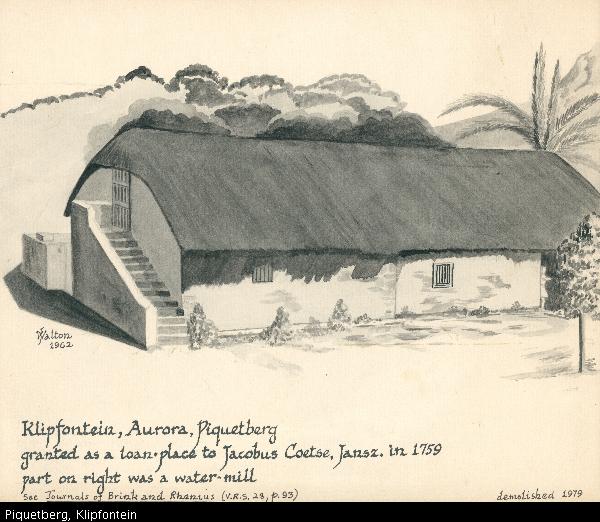 Walton
1962
Klipfontein, Aurora, Piquetberg
granted as a loan-place to Jacobus Coetse, Jansz. in 1759
part on right was a water-mill
See Journals of Brink and Rhenius (V.R.S. 28, p. 93)
demolished 1979
Piquetberg, Klipfontein